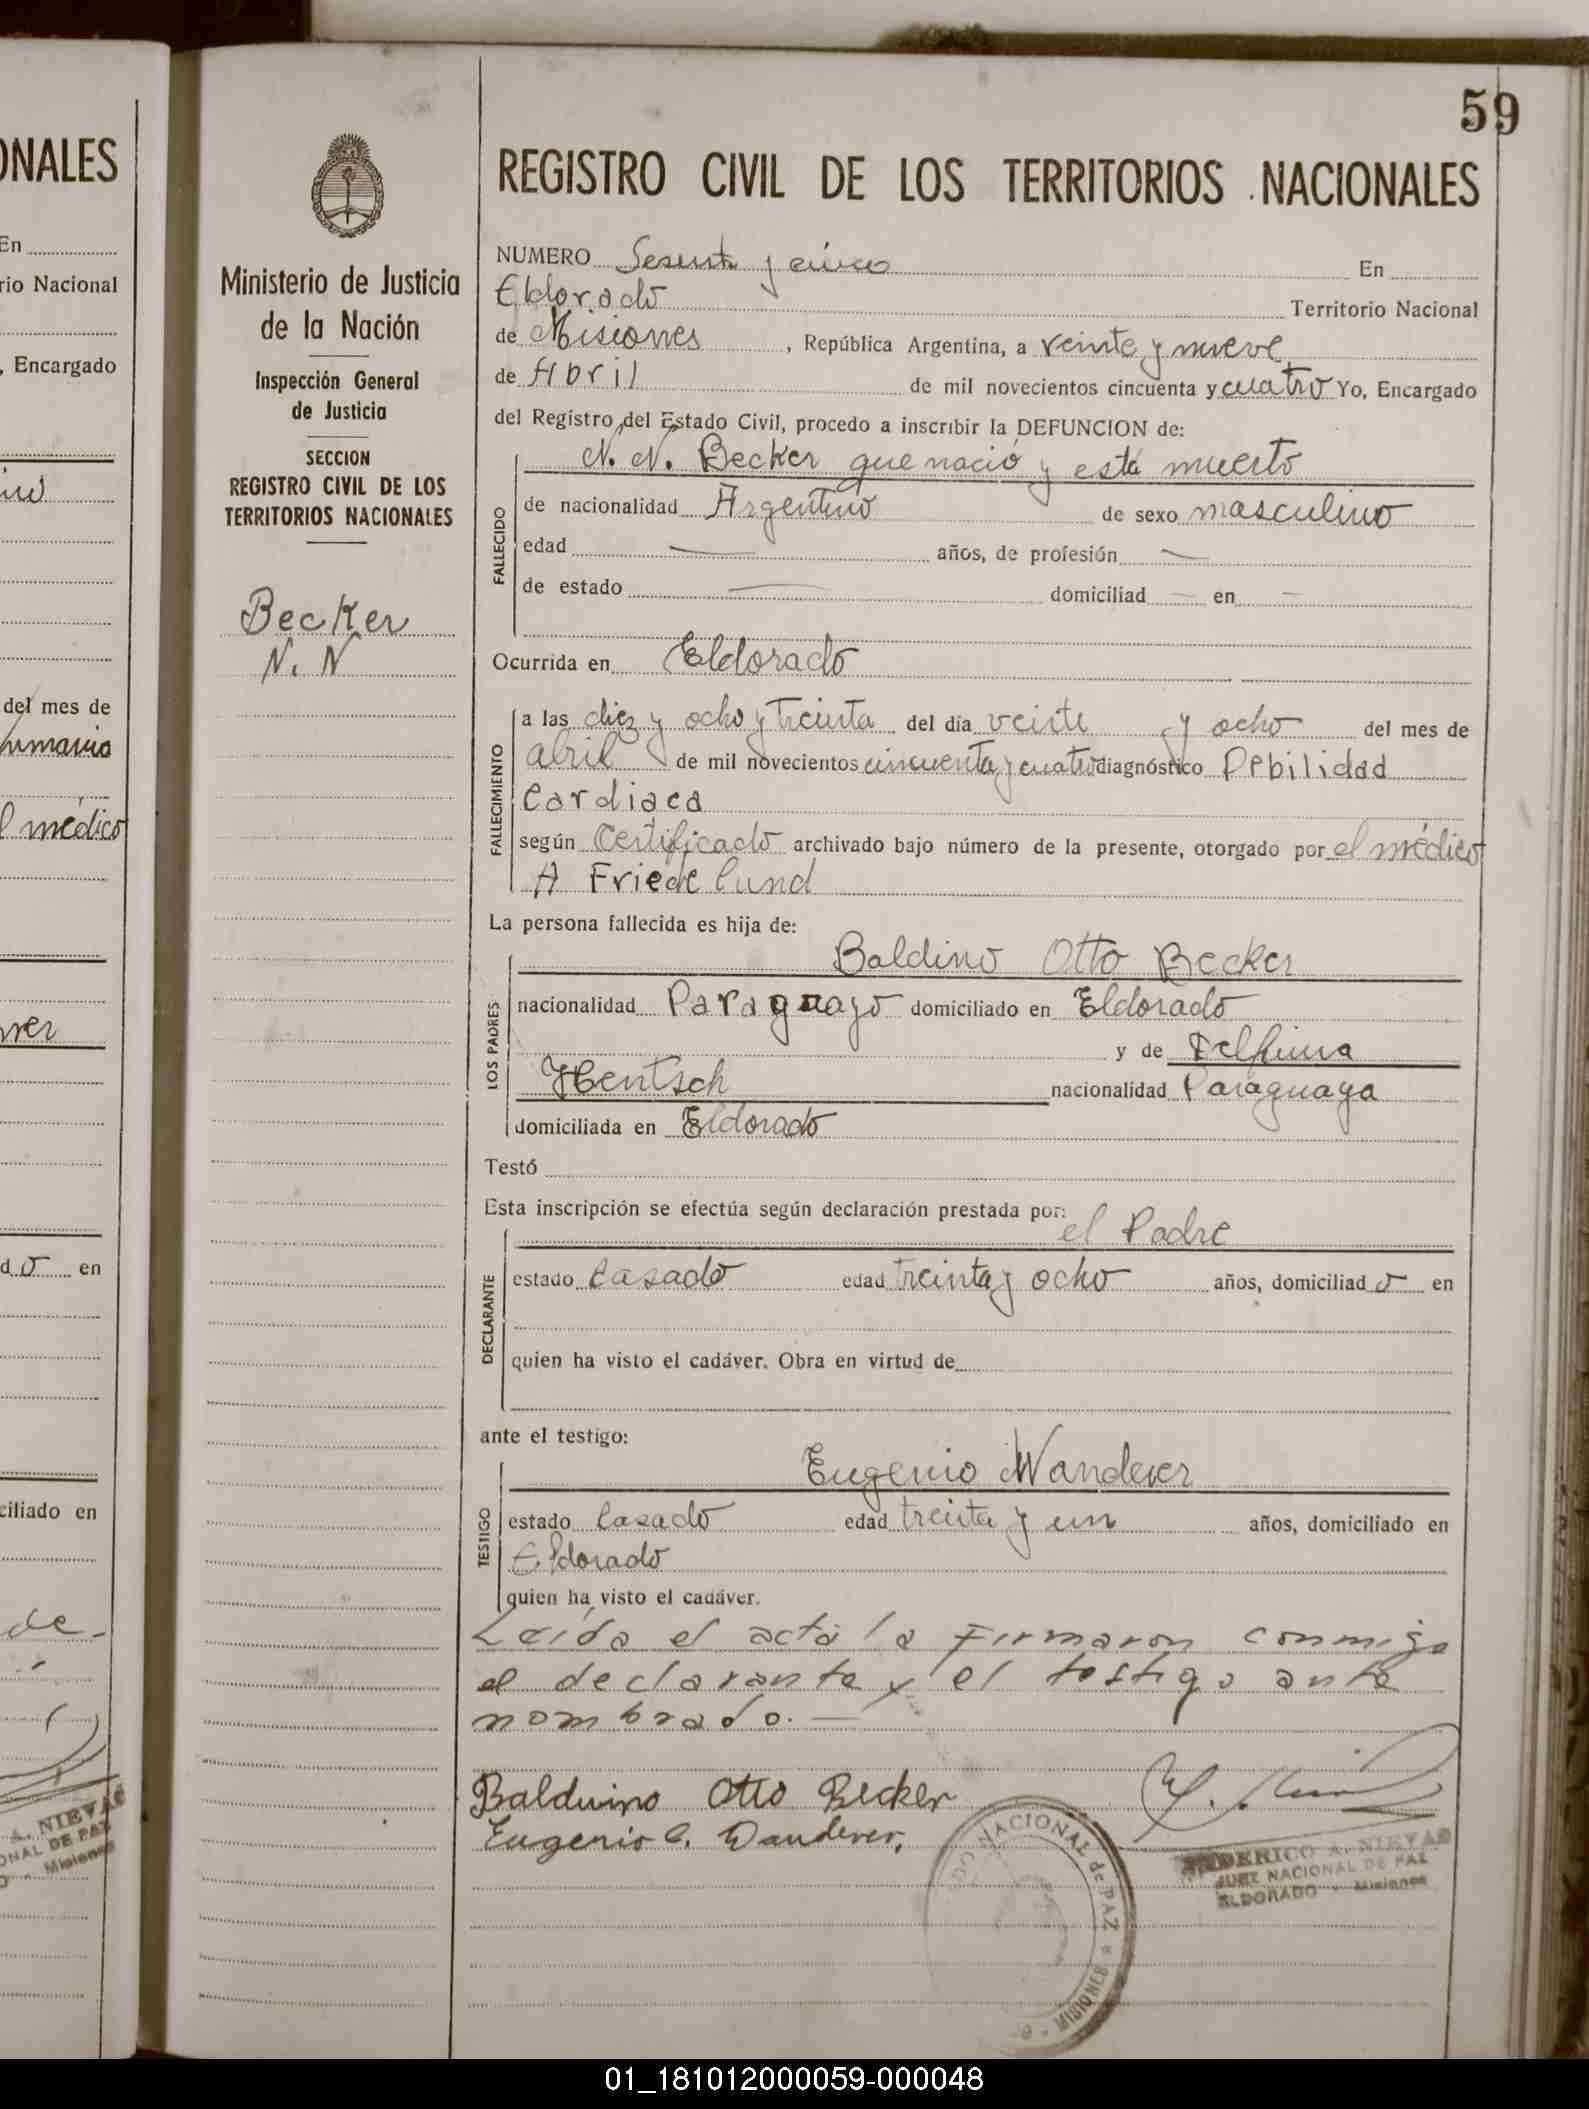 59
ONALES
En
rio Nacional
, Encargado
del mes de
l médico
d o en
ciliado en
A. NIEVAS
ONAL DE PAZ
Misiones
Ministerio de Justicia
de la Nación
Inspección General
de Justicia
SECCION
REGISTRO CIVIL DE LOS
TERRITORIOS NACIONALES
Becker
N. N
REGISTRO CIVIL DE LOS TERRITORIOS NACIONALES
NUMERO Sesenta y cinco En
Eldorado Territorio Nacional
de Misiones , República Argentina, a veinte y nueve
de Abril de mil novecientos cincuenta y cuatro Yo, Encargado
del Registro del Estado Civil, procedo a inscribir la DEFUNCION de:
N. N. Becker que nació y está muerto
FALLECIDO
de nacionalidad Argentino de sexo masculino
edad — años, de profesión —
de estado — domiciliad — en —
Ocurrida en Eldorado
FALLECIMIENTO
a las diez y ocho y treinta del día veinte y ocho del mes de
abril de mil novecientos cincuenta y cuatro diagnóstico Debilidad
Cardiaca
según Certificado archivado bajo número de la presente, otorgado por el médico
A Friedelund
La persona fallecida es hija de:
LOS PADRES
Baldino Otto Becker
nacionalidad Paraguayo domiciliado en Eldorado
y de Delfina
Hentsch nacionalidad Paraguaya
domiciliada en Eldorado
Testó
Esta inscripción se efectúa según declaración prestada por:
el Padre
DECLARANTE
estado Casado edad treinta y ocho años, domiciliad o en
quien ha visto el cadáver. Obra en virtud de
ante el testigo:
Eugenio Wanderer
TESTIGO
estado Casado edad treinta y un años, domiciliado en
Eldorado
quien ha visto el cadáver.
Leída el acta la firmaron conmigo
el declarante y el testigo ante
nombrado. —
Balduino Otto Becker
Eugenio C. Wanderer.
NACIONAL de PAZ * MISIONES
FEDERICO A. NIEVAS
JUEZ NACIONAL DE PAZ
ELDORADO - Misiones
01_181012000059-000048